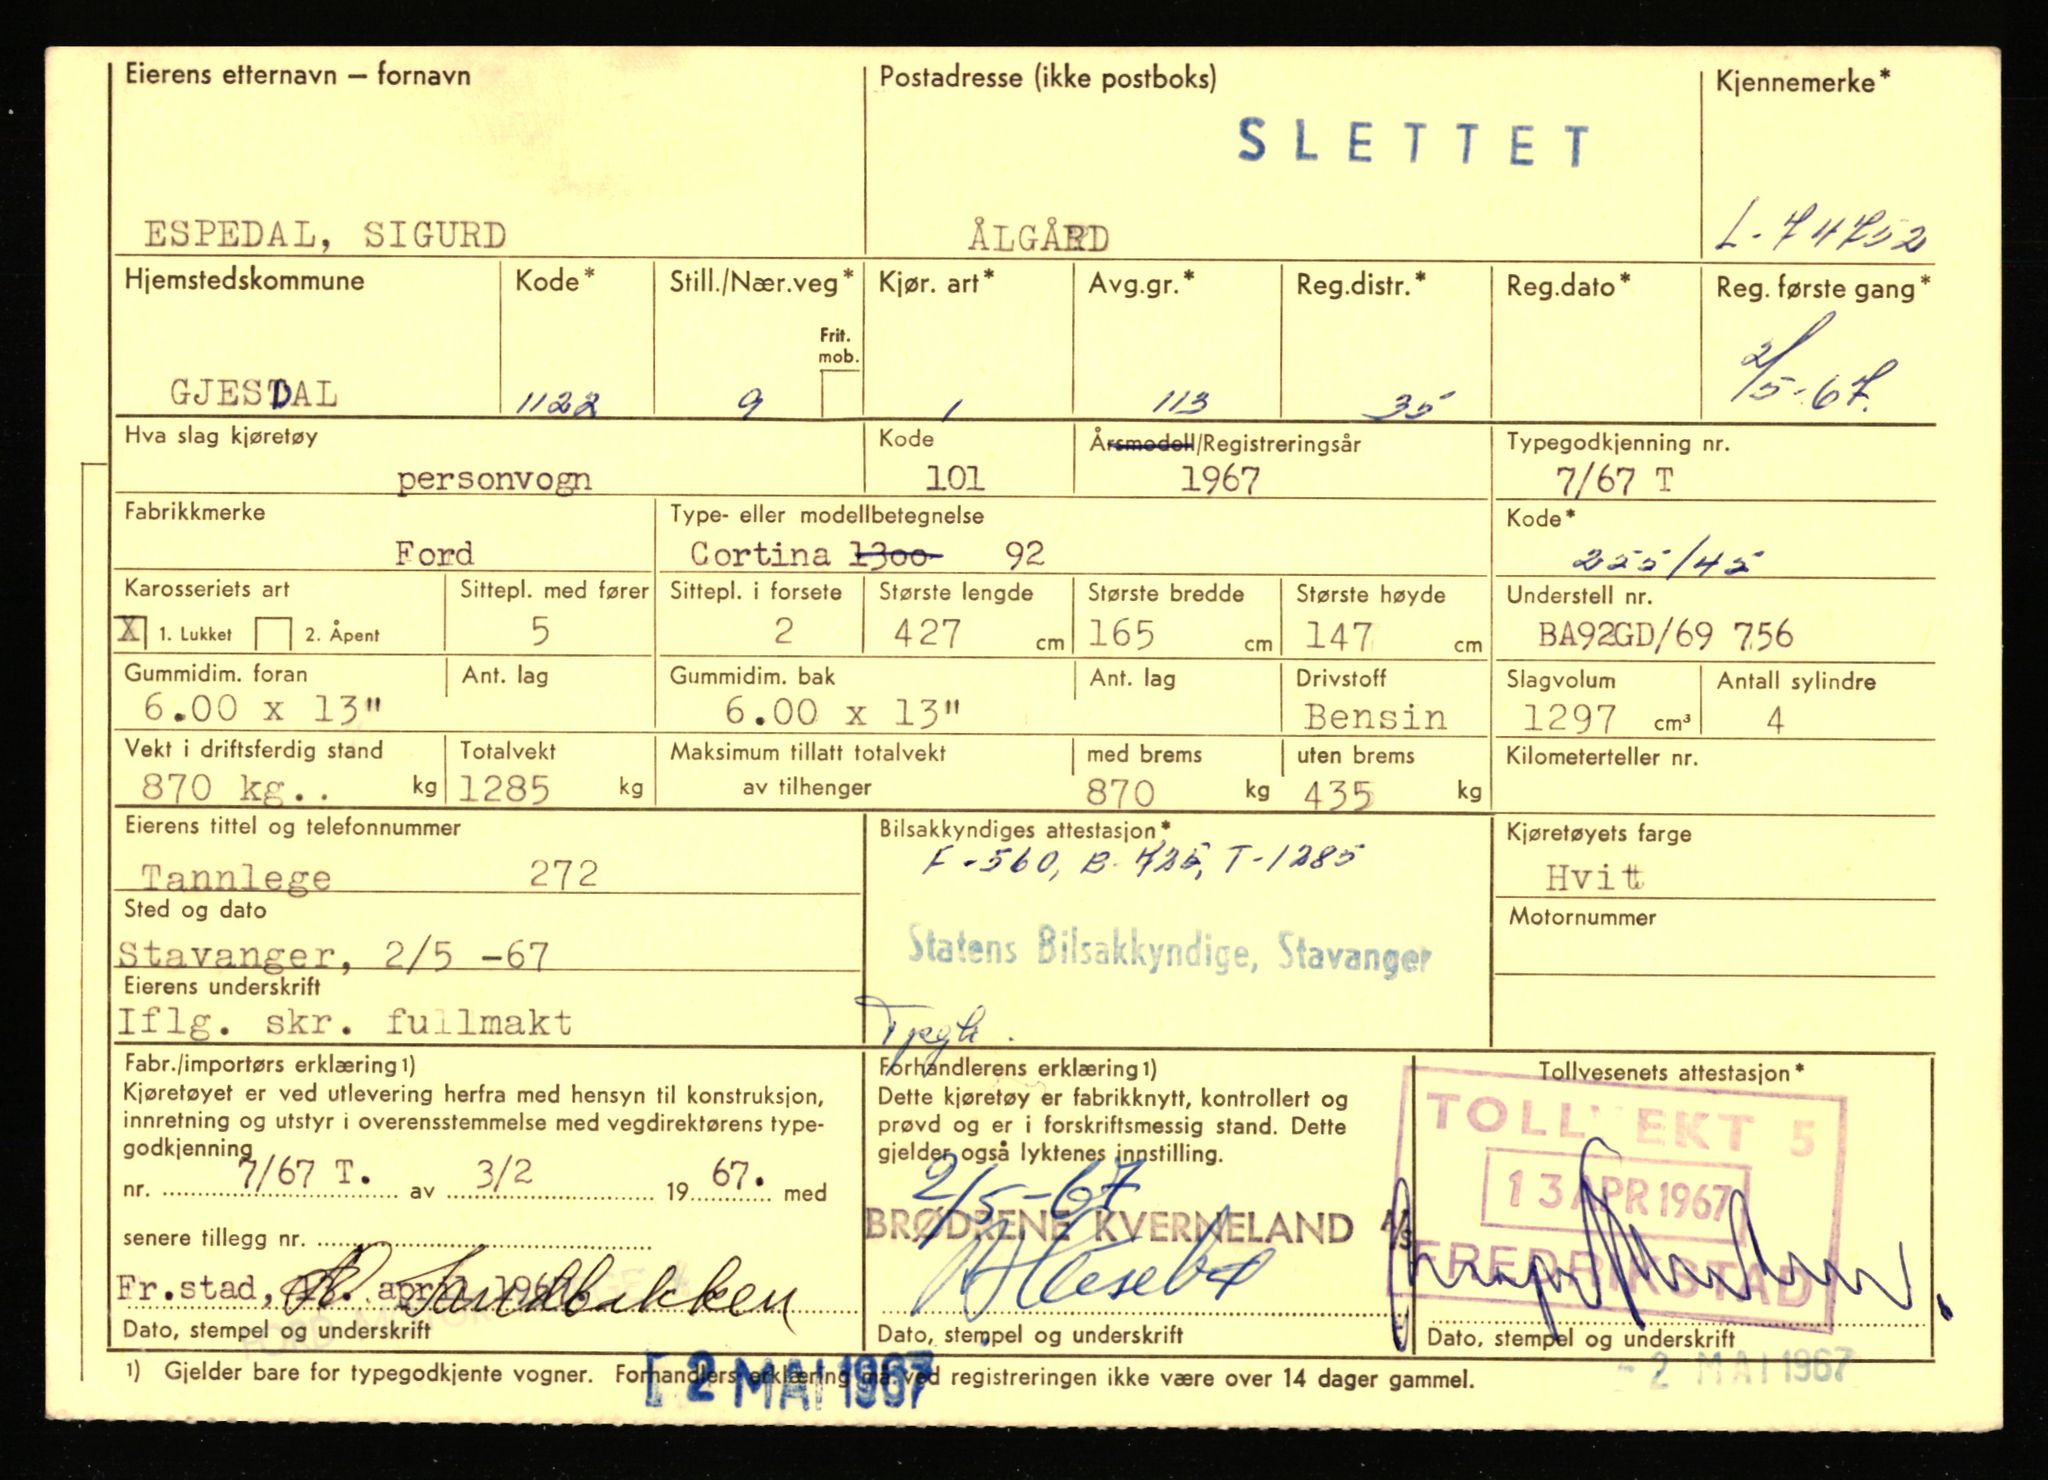 Eierens etternavn – fornavn
Postadresse (ikke postboks)
Kjennemerke*
SLETTET
ESPEDAL, SIGURD
ÅLGÅRD
L-74752
Hjemstedskommune
Kode*
Still./Nær.veg*
Kjør. art*
Avg.gr.*
Reg.distr.*
Reg.dato*
Reg. første gang*
Frit. mob.
GJESDAL
1122
9
1
113
35
2/5-67.
Hva slag kjøretøy
Kode
Årsmodell/Registreringsår
Typegodkjenning nr.
personvogn
101
1967
7/67 T
Fabrikkmerke
Type- eller modellbetegnelse
Kode*
Ford
Cortina 1300 92
255/45
Karosseriets art
Sittepl. med fører
Sittepl. i forsete
Største lengde
Største bredde
Største høyde
Understell nr.
X 1. Lukket 2. Åpent
5
2
427 cm
165 cm
147 cm
BA92GD/69 756
Gummidim. foran
Ant. lag
Gummidim. bak
Ant. lag
Drivstoff
Slagvolum
Antall sylindre
6.00 x 13"
6.00 x 13"
Bensin
1297 cm³
4
Vekt i driftsferdig stand
Totalvekt
Maksimum tillatt totalvekt
med brems
uten brems
Kilometerteller nr.
870 kg.. kg
1285 kg
av tilhenger
870 kg
435 kg
Eierens tittel og telefonnummer
Bilsakkyndiges attestasjon*
Kjøretøyets farge
F-560, B-725, T-1285
Tannlege 272
Hvitt
Sted og dato
Motornummer
Statens Bilsakkyndige, Stavanger
Stavanger, 2/5 -67
Eierens underskrift
Iflg. skr. fullmakt
Fabr./importørs erklæring1)
Kjøretøyet er ved utlevering herfra med hensyn til konstruksjon,
innretning og utstyr i overensstemmelse med vegdirektørens type-
godkjenning
nr. 7/67 T. av 3/2 1967. med
senere tillegg nr.
Fr.stad, apr 196
Sandbakken
Dato, stempel og underskrift
Forhandlerens erklæring1)
Dette kjøretøy er fabrikknytt, kontrollert og
prøvd og er i forskriftsmessig stand. Dette
gjelder også lyktenes innstilling.
2/5-67
BRØDRENE KVERNELAND A/S
Dato, stempel og underskrift
Tollvesenets attestasjon*
TOLLVEKT 5
13 APR 1967
FREDRIKSTAD
Dato, stempel og underskrift
1) Gjelder bare for typegodkjente vogner. Forhandlers erklæring må ved registreringen ikke være over 14 dager gammel.
2 MAI 1967
- 2 MAI 1967